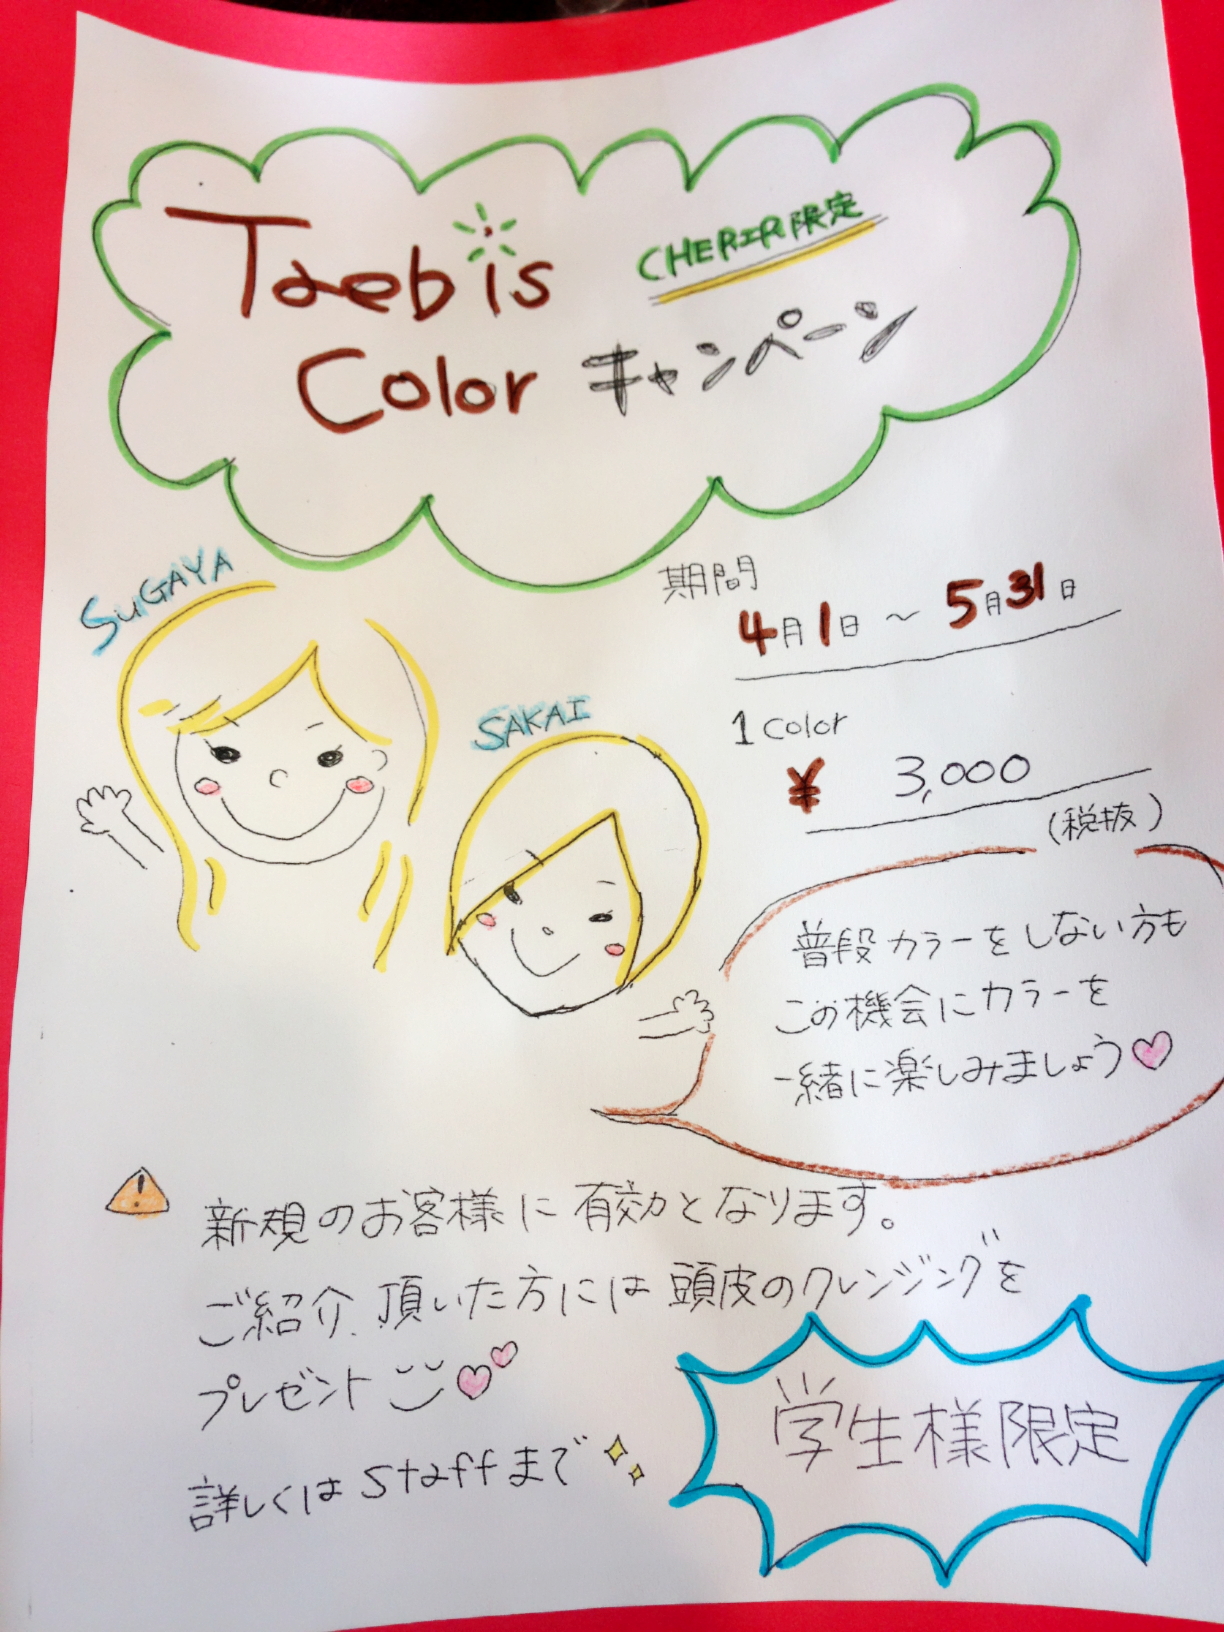 Taebis
CHERIR限定
Color キャンペーン
SUGAYA
SAKAI
期間
4月1日 ~ 5月31日
1 color
¥ 3,000
(税抜)
普段カラーをしない方も
この機会にカラーを
一緒に楽しみましょう
新規のお客様に有効となります。
ご紹介頂いた方には頭皮のクレンジングを
プレゼント
詳しくはstaffまで
学生様限定